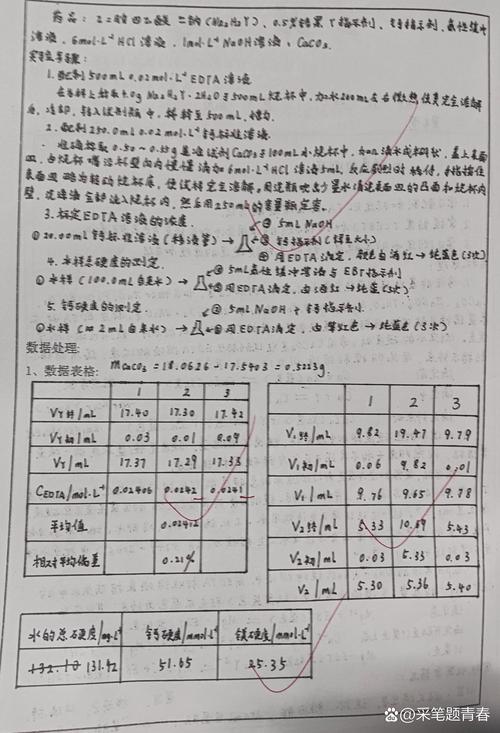 药品:乙二胺四乙酸二钠(Na₂H₂Y)、0.5%铬黑T指示剂、钙指示剂、氨性缓冲
溶液、6mol·L⁻¹HCl溶液、1mol·L⁻¹NaOH溶液、CaCO₃.
实验步骤:
1.配制500mL 0.02mol·L⁻¹EDTA溶液
Na₂H₂Y·2H₂O于500mL烧杯中,加水200mL左右微热使其完全溶解
后,冷却,转入试剂瓶中,稀释至500mL,摇匀.
2.配制250.0ml 0.02mol·L⁻¹钙标准溶液
准确称取0.50~0.55g基准试剂CaCO₃于100mL小烧杯中,加水成糊状,盖上表面
皿,由烧杯嘴沿杯壁向内慢慢滴加6mol·L⁻¹HCl溶液5mL,反应剧烈时稍停,手指按住
表面皿略为转动烧杯底,使试样完全溶解,用洗瓶吹出少量水清洗表面皿的凸面和烧杯内
壁,洗涤液全部流入烧杯内,然后用250ml的容量瓶定容.
3.标定EDTA溶液的浓度.
②5mL NaOH
①20.00mL钙标准溶液(移液管)→
③钙指示剂(绿豆大小)
④用EDTA滴定,颜色由酒红→纯蓝色(3次)
4.水样总硬度的测定.
②5mL氨性缓冲溶液与EBT指示剂
①水样(100.0mL自来水)→
③用EDTA滴定,由酒红→纯蓝色(3次)
5.钙硬度的测定.
②5mL NaOH+钙指示剂
①水样(∞2mL自来水)→③用EDTA滴定,由紫红色→纯蓝色(3次)
数据处理:
1、数据表格: mCaCO₃=18.0626-17.5403=0.5223g
1 2 3
VY终/mL 17.40 17.30 17.42
VY初/mL 0.03 0.01 0.09
VY/mL 17.37 17.29 17.33
CEDTA/mol·L⁻¹ 0.02406 0.0242 0.0241
平均值 0.02412
相对平均偏差 0.21%
1 2 3
V₁终/mL 9.82 19.47 9.79
V₁初/mL 0.06 9.82 0.01
V₁/mL 9.76 9.65 9.78
V₂终/mL 5.33 10.69 5.43
V₂初/mL 0.03 5.33 0.03
V₂/mL 5.30 5.36 5.40
水的总硬度/mg·L⁻¹ 钙硬度/mmol·L⁻¹ 镁硬度/mmol·L⁻¹
132.10 131.42 51.65 25.35
@采笔题青春